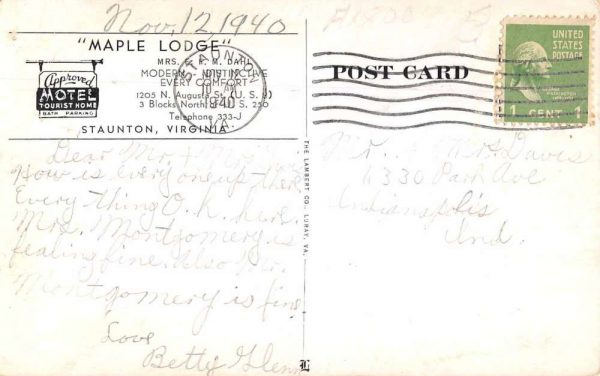 Nov. 12, 1940
"MAPLE LODGE"
MRS. R. M. DAHL
MODERN - DISTINCTIVE
EVERY COMFORT
1205 N. Augusta St. (U. S. 11)
3 Blocks North of U. S. 250
Telephone 333-J
STAUNTON, VIRGINIA
Approved
MOTEL
TOURIST HOME
BATH PARKING
STAUNTON
1940
VA.
POST CARD
UNITED
STATES
POSTAGE
1 CENT 1
Dear Mr. & Mrs.
How is every one up there
Every thing O. K. here.
Mrs. Montgomery is
fealing fine. Also Mr.
Montgomery is fine
Love
Betty Glenn
THE LAMBERT CO., LURAY, VA.
Mr. & Mrs Davis
4330 Park Ave
Indianapolis
Ind.